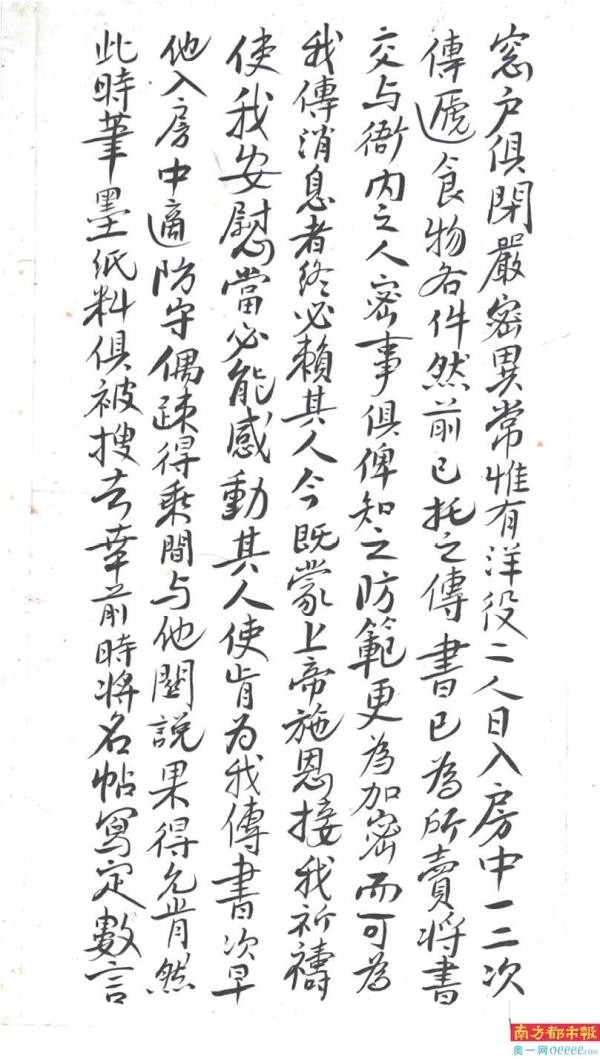 窓户俱閉嚴密異常惟有洋役二人日入房中一二次
傳遞食物各件然前已托之傳書已為所賣将書
交与衙内之人密事俱俾知之防範更為加密而可為
我傳消息者終必賴其人今既蒙上帝施恩接我祈禱
使我安慰當必能感動其人使肯为我傳書次早
他入房中適防守偶疎得乘間与他関説果得允肯然
此時筆墨纸料俱被搜去幸前時将名帖寫定數言
南方都市報
奥一网oeeee.com